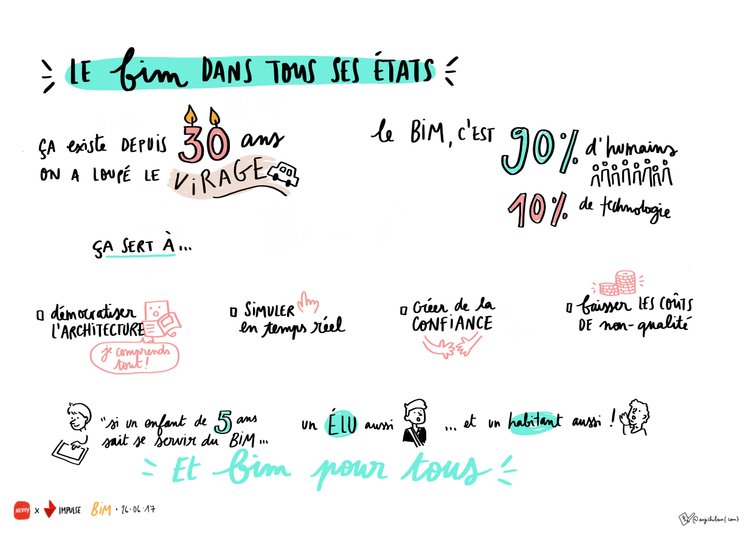 LE bim DANS TOUS SES ÉTATS
ÇA existe DEPUIS 30 ans
ON A LOUPÉ LE VIRAGE
le BIM, C'EST 90% d'humains
10% de technologie
ÇA SERT À...
démocratiser
L'ARCHITECTURE
je comprends
tout !
SIMULER
en temps réel
Créer de la
CONFIANCE
baisser LES COÛTS
DE non-qualité
"si un enfant de 5 ans
sait se servir du BIM...
un ÉLU aussi
... et un habitant aussi !
Et bim pour tous
x IMPULSE BIM • 26.06.17